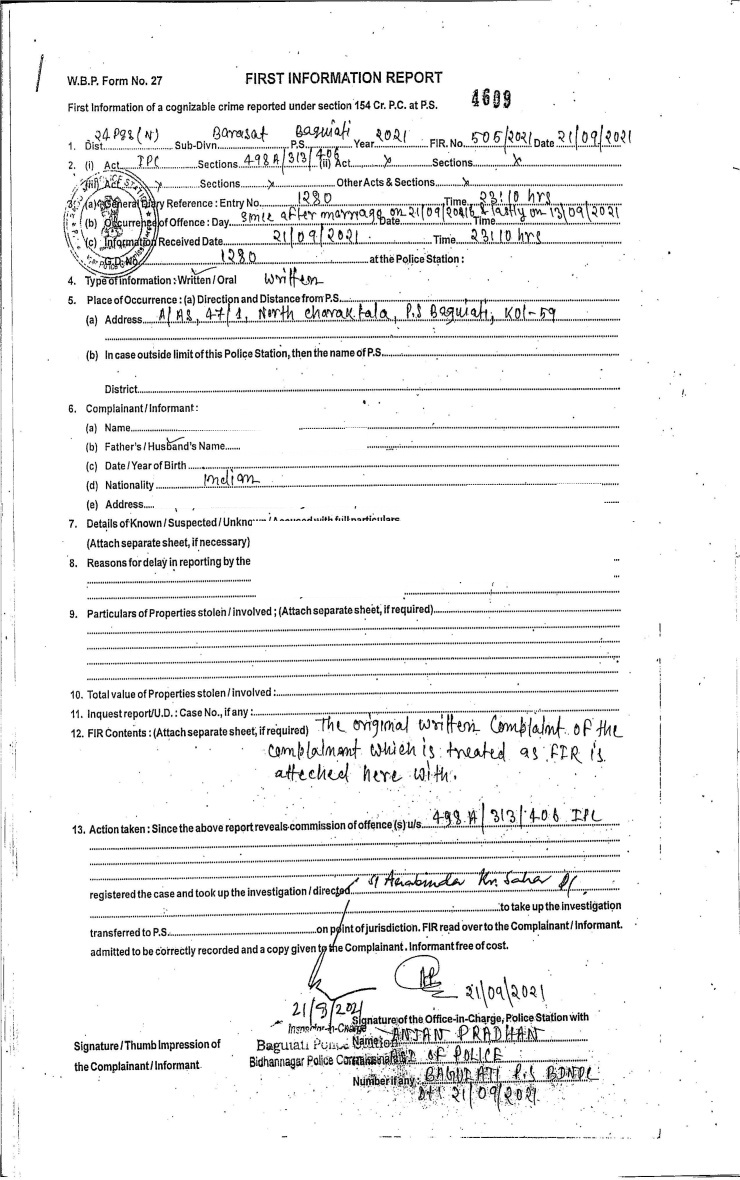 W.B.P. Form No. 27 FIRST INFORMATION REPORT
First Information of a cognizable crime reported under section 154 Cr. P.C. at P.S. 4609
1. Dist. 24 PGS (N) Sub-Divn. Barasat P.S. Baguiati Year 2021 FIR. No. 505/2021 Date 21/09/2021
2. (i) Act IPC Sections 498A/313/406 (ii) Act x Sections x
(iii) Act x Sections x Other Acts & Sections x
3. (a) General Diary Reference : Entry No. 1280 Time 23:10 hrs
(b) Occurrence of Offence : Day since after marriage on 21/09/2016 & lastly on 13/09/2021 Date Time
(c) Information Received Date 21/09/2021. Time 23:10 hrs
G.D. No. 1280 at the Police Station :
4. Type of information : Written / Oral Written
5. Place of Occurrence : (a) Direction and Distance from P.S.
(a) Address A/AS, 47/1, North Charaktala, P.S Baguiati, KOl-59
(b) In case outside limit of this Police Station, then the name of P.S.
District
6. Complainant / Informant :
(a) Name
(b) Father's / Husband's Name
(c) Date / Year of Birth
(d) Nationality Indian
(e) Address
7. Details of Known / Suspected / Unknown / Accused with full particulars
(Attach separate sheet, if necessary)
8. Reasons for delay in reporting by the
9. Particulars of Properties stolen / involved ; (Attach separate sheet, if required)
10. Total value of Properties stolen / involved :
11. Inquest report/U.D. : Case No., if any :
12. FIR Contents : (Attach separate sheet, if required) The original written Complaint of the
complainant which is treated as FIR is
atteched here with.
13. Action taken : Since the above report reveals commission of offence (s) u/s. 498A/313/406 IPC
registered the case and took up the investigation / directed SI Aurabinda Kr. Saha
to take up the investigation
transferred to P.S. on point of jurisdiction. FIR read over to the Complainant / Informant.
admitted to be correctly recorded and a copy given to the Complainant. Informant free of cost.
21/09/2021
21/9/2021
Signature of the Office-in-Charge, Police Station with
Inspector-in-Charge
Signature / Thumb Impression of Baguiati Police Station Name ANJAN PRADHAN
the Complainant / Informant Bidhannagar Police Commissionerate OF POLICE
Number if any : BAGUIATI P.S BDNPC
Dt: 21/09/2021